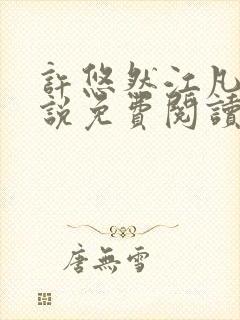 許悠然江凡
說免費閱讀
唐無雪